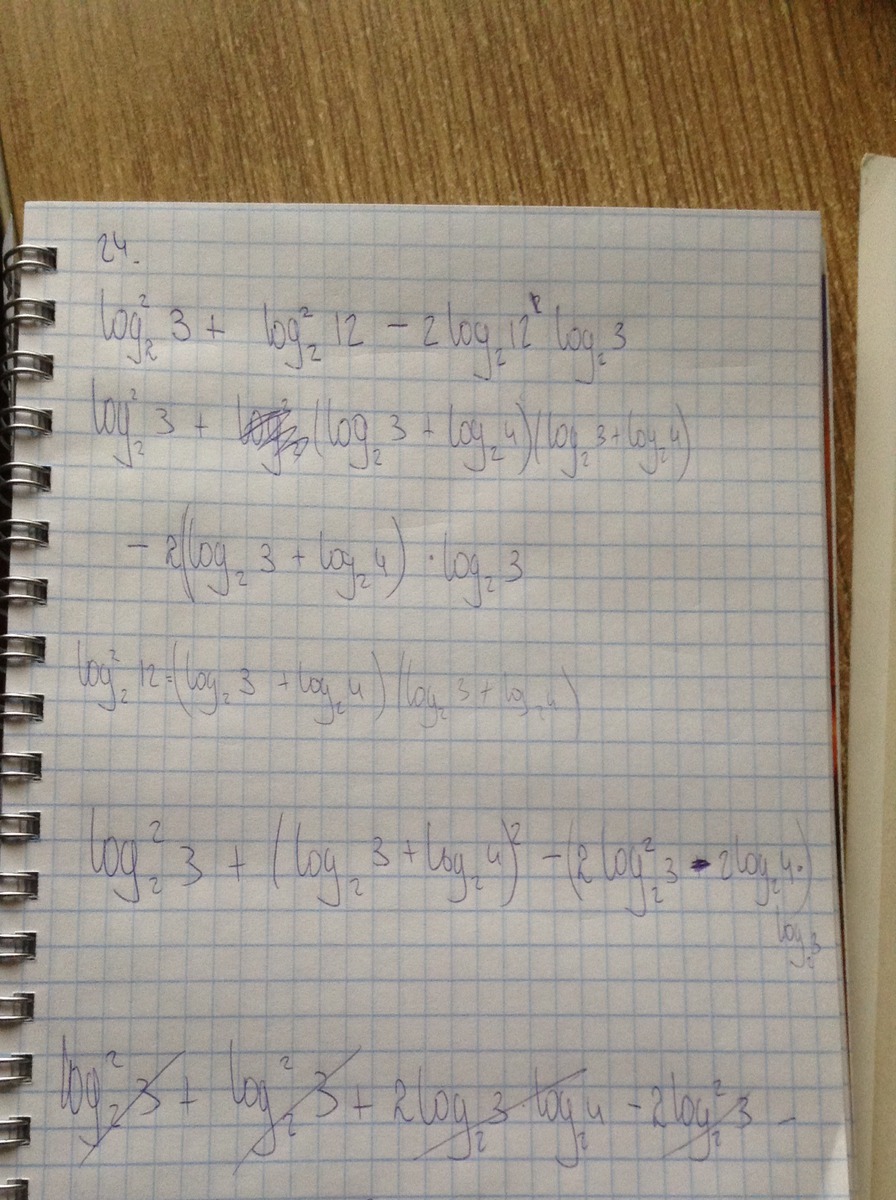 24.
log₂² 3 + log₂² 12 − 2 log₂ 12 log₂ 3
log₂² 3 + (log₂ 3 + log₂ 4)(log₂ 3 + log₂ 4)
− 2(log₂ 3 + log₂ 4) · log₂ 3
log₂² 12 = (log₂ 3 + log₂ 4)(log₂ 3 + log₂ 4)
log₂² 3 + (log₂ 3 + log₂ 4)² − (2 log₂² 3 - 2 log₂ 4 ·)
log₂ 3
log₂² 3 + log₂² 3 + 2 log₂ 3 · log₂ 4 − 2 log₂² 3 −